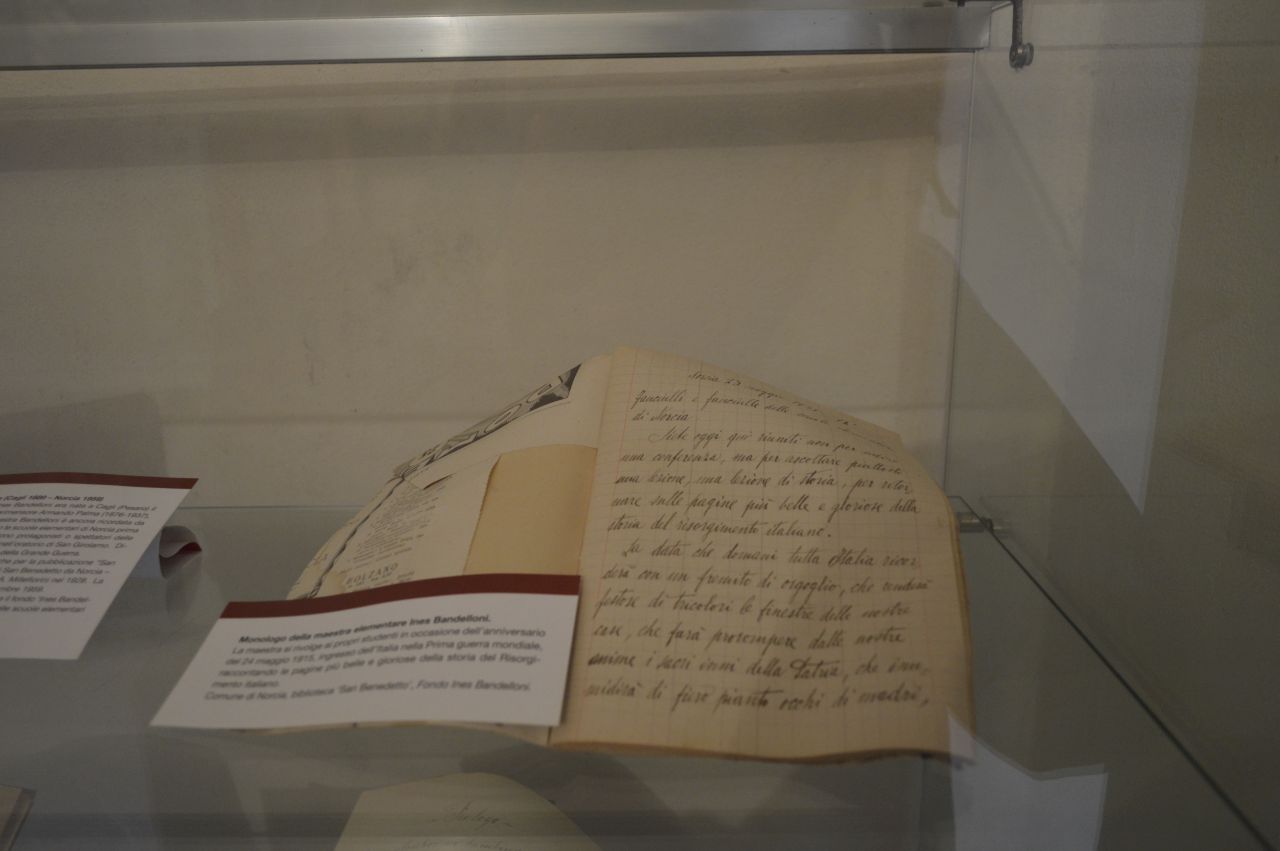 (Cagli 1880 - Norcia 1959)
Bandelloni era nata a Cagli (Pesaro) il
Armando Palma (1876-1937),
Bandelloni è ancora ricordata da
le scuole elementari di Norcia prima
protagonisti o spettatori delle
nell'oratorio di San Girolamo. Di-
della Grande Guerra.
che per la pubblicazione "San
San Benedetto da Norcia –
Millefiorini nel 1928. La
1959.
il fondo "Ines Bandel-
elle scuole elementari
BOLZANO
Monologo della maestra elementare Ines Bandelloni.
La maestra si rivolge ai propri studenti in occasione dell'anniversario
del 24 maggio 1915, ingresso dell'Italia nella Prima guerra mondiale,
raccontando le pagine più belle e gloriose della storia del Risorgi-
mento italiano.
Comune di Norcia, biblioteca "San Benedetto", Fondo Ines Bandelloni.
Norcia 23 maggio
fanciulli e fanciulle delle
di Norcia
Siete oggi qui riuniti non per udire
una conferenza, ma per ascoltare piuttosto
una lezione, una lezione di storia, per ritor
nare sulle pagine più belle e gloriose della
storia del risorgimento italiano.
La data che domani tutta Italia ricor
derà con un fremito di orgoglio, che renderà
festose di tricolori le finestre delle nostre
case, che farà prorompere dalle nostre
anime i sacri inni della Patria, che inu-
midirà di fiero pianto occhi di madri,
Dialogo